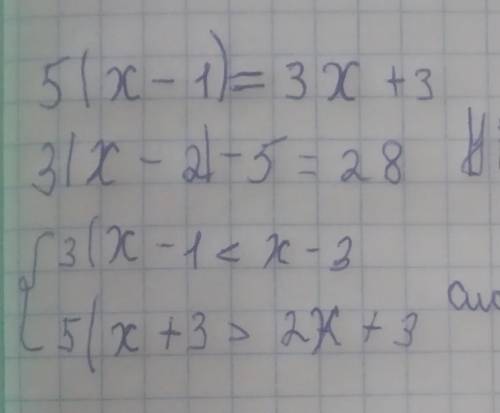 5(x - 1) = 3x + 3
3(x - 2) - 5 = 28
{ 3(x - 1 < x - 3
5(x + 3 > 2x + 3